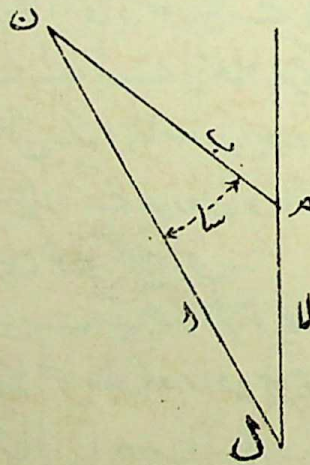 ن
ب
م
سا
د
لا
ل